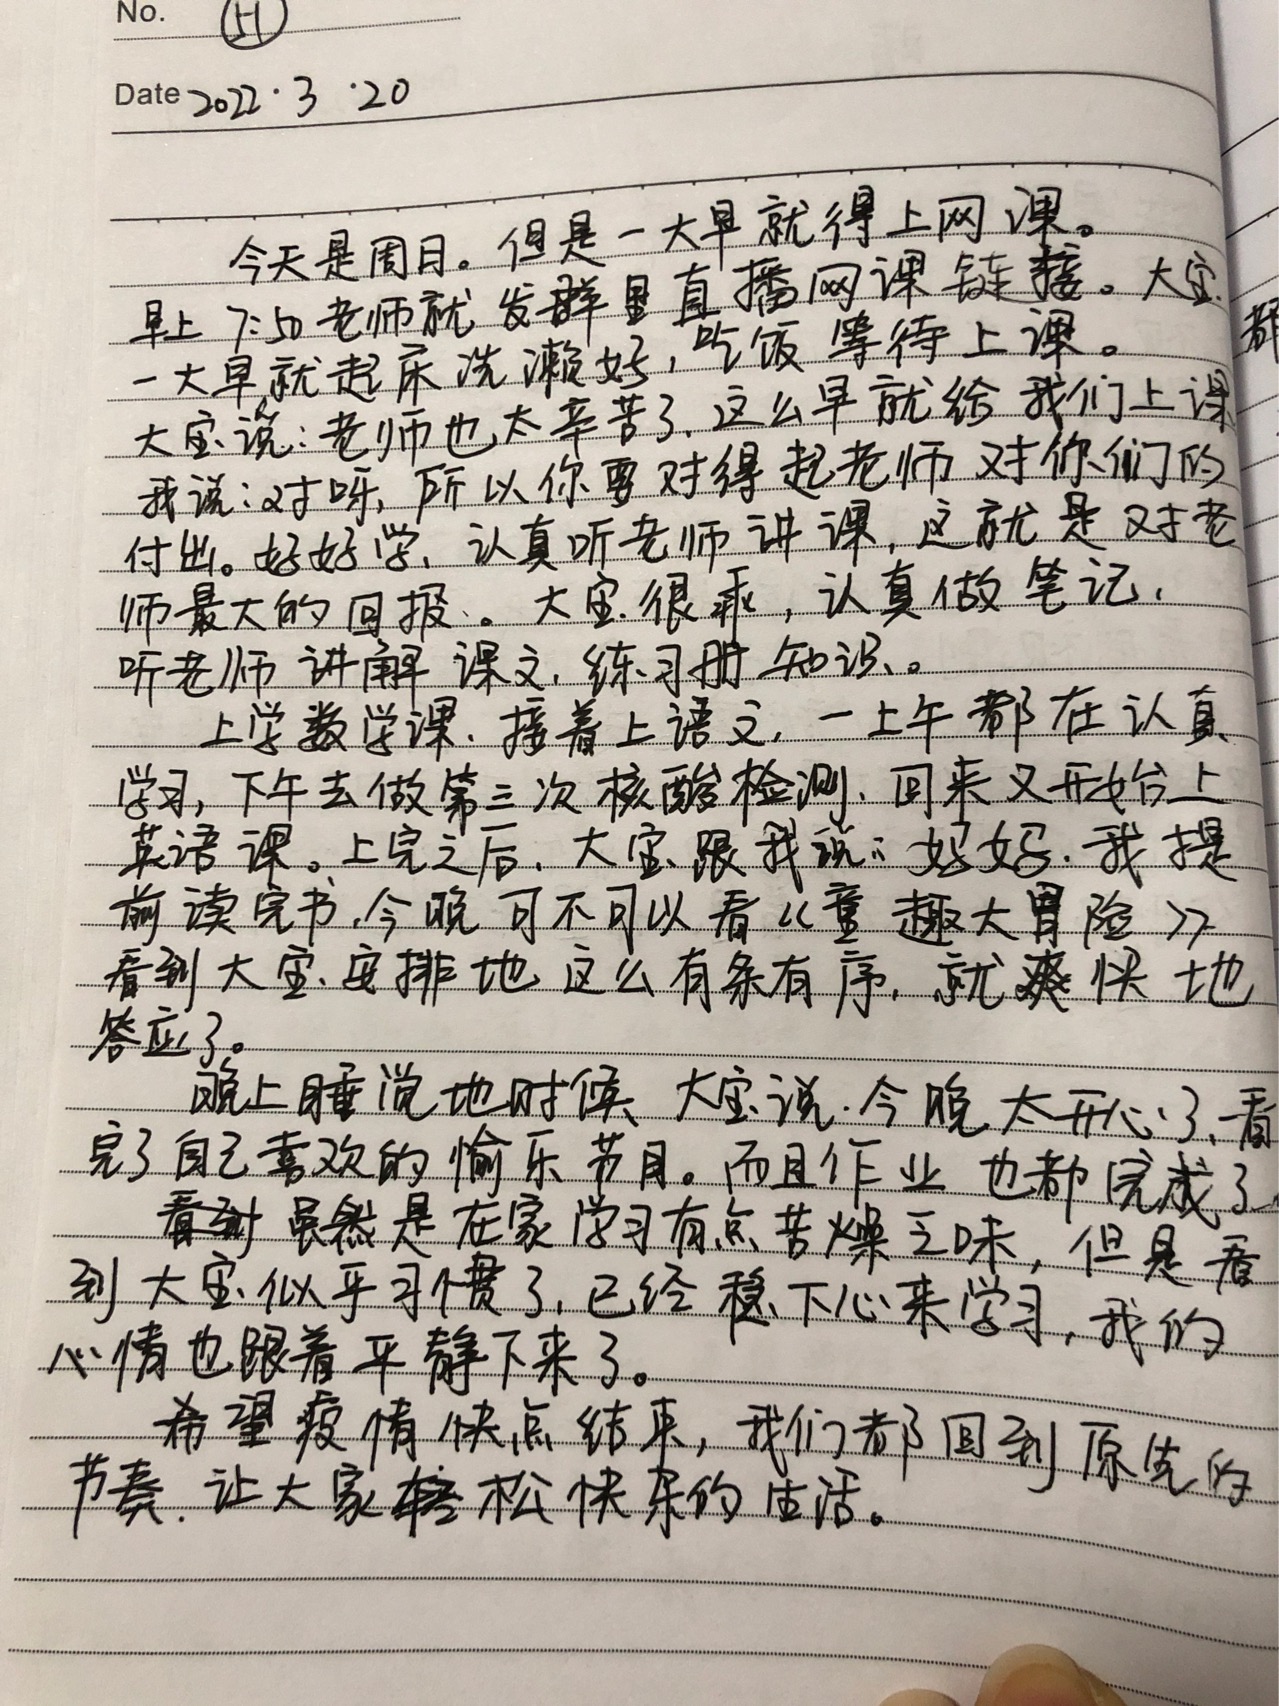 No.
Date 2022.3.20
今天是周日。但是一大早就得上网课。
早上7:50老师就发群里直播网课链接。大宝
一大早就起床洗漱好,吃饭等待上课。
大宝说:老师也太辛苦了、这么早就给我们上课
我说:对呀,所以你要对得起老师对你们的
付出。好好学、认真听老师讲课,这就是对老
师最大的回报。大宝很乖,认真做笔记,
听老师讲解课文,练习册知识。
上学数学课、接着上语文,一上午都在认真
学习,下午去做第三次核酸检测、回来又开始上
英语课。上完之后、大宝跟我说:妈妈.我提
前读完书,今晚可不可以看《童趣大冒险》
看到大宝安排地这么有条有序,就爽快地
答应了。
晚上睡觉地时候、大宝说.今晚太开心了、看
完了自己喜欢的愉乐节目。而且作业也都完成了。
看到虽然是在家学习有点苦燥乏味,但是看
到大宝似乎习惯了,已经稳下心来学习,我的
心情也跟着平静下来了。
希望疫情快点结束,我们都回到原先的
节奏、让大家轻松快乐的生活。
都